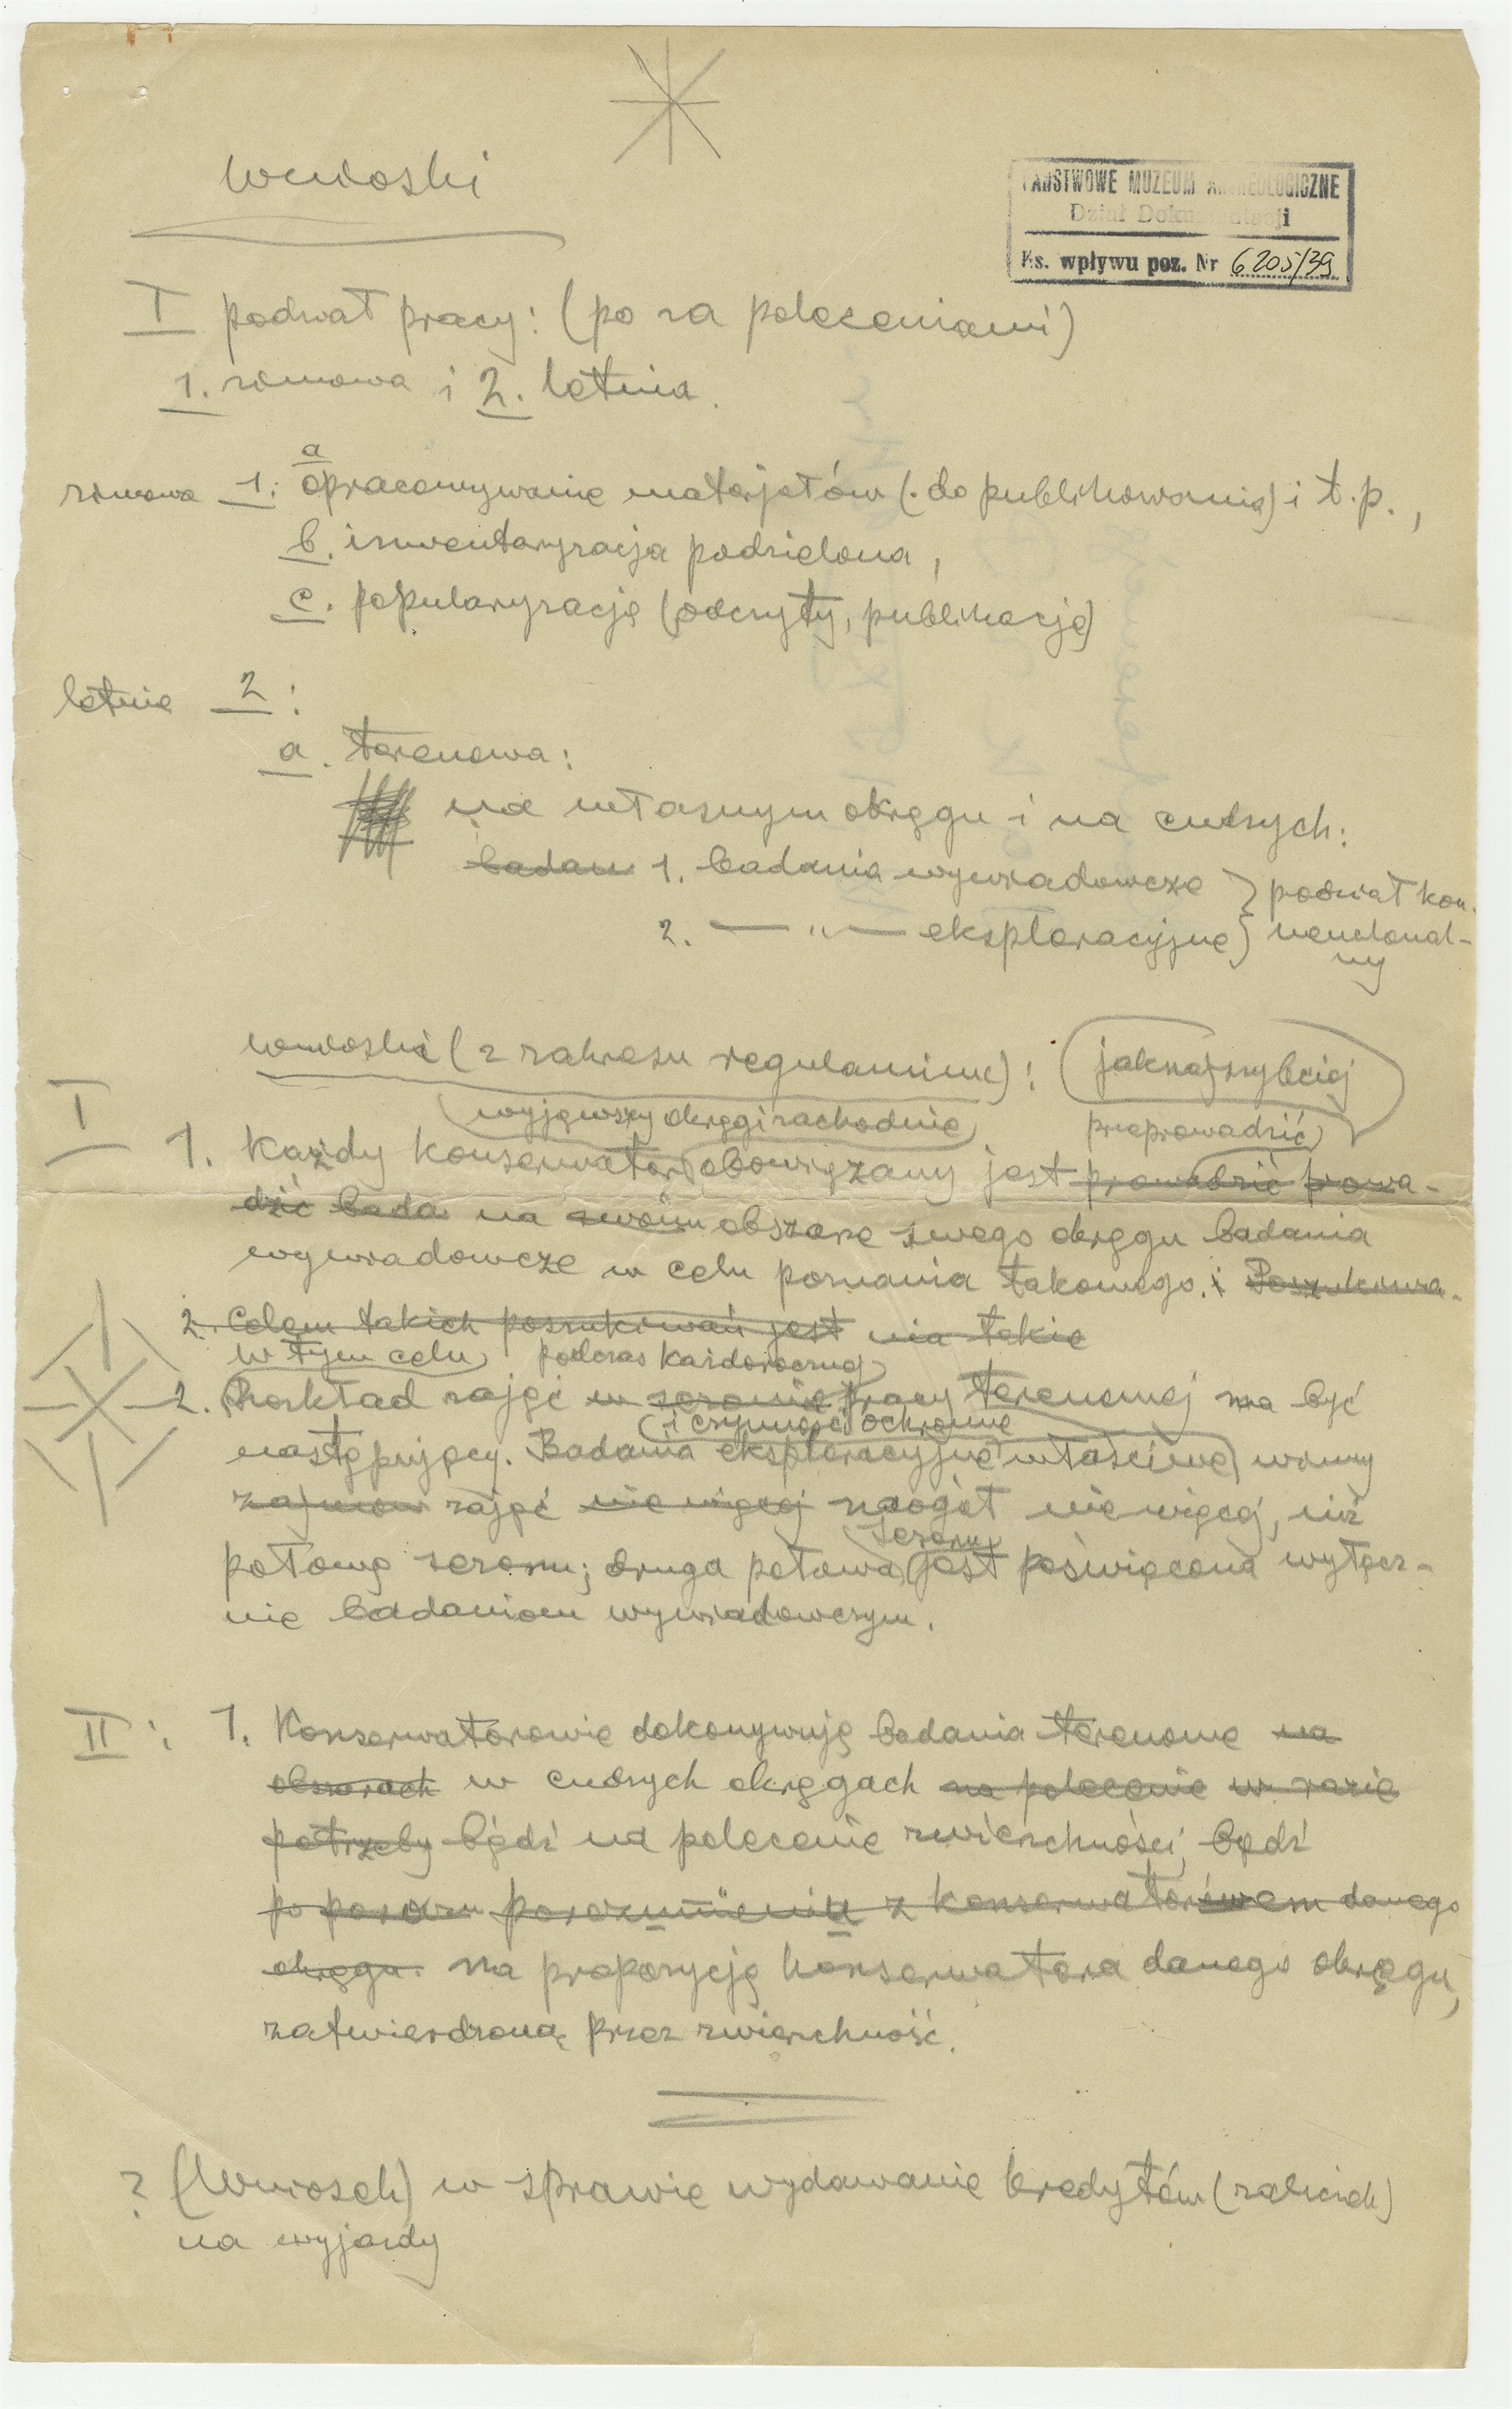 wnioski
PAŃSTWOWE MUZEUM ARCHEOLOGICZNE
Dział Dokumentacji
Ks. wpływu poz. Nr 6205/39
I podział pracy: (po za poleceniami)
1. zimowa i 2. letnia.
zimowa 1: a opracowywanie materjałów (do publikowania) i t.p.,
b. inwentaryzacja podzielona,
c. popularyzacja (odczyty, publikacje)
letnie 2:
a. terenowa:
na własnym okręgu i na cudzych:
badan 1. badania wywiadowcze } podział kon-
2. — " — eksploracyjne } wencjonal-
ny
wnioski (z zakresu regulaminu): jaknajszybciej
wyjąwszy okręgi zachodnie przeprowadzić
I 1. Każdy konserwator obowiązany jest prowadzić prowa-
dzić bada na swoim obszarze swego okręgu badania
wywiadowcze w celu poznania takowego. i Poszukiwa-
2. Celem takich poszukiwań jest nia takie
w tym celu podczas każdorocznej
2. Rozkład zajęć w sezonie pracy terenowej ma być
i czynności ochronne
następujący. Badania eksploracyjne właściwe winny
zajmow zająć nie więcej naogół nie więcej, niż
sezonu
połowę sezonu; druga połowa jest poświęcona wyłącz-
nie badaniom wywiadowczym.
II: 1. Konserwatorowie dokonywują badania terenowe na
obszarach w cudzych okręgach na polecenie w razie
potrzeby bądź na polecenie zwierzchności, bądź
po porozu porozumieniu z konserwatorem danego
okręgu. na propozycję konserwatora danego okręgu,
zatwierdzoną przez zwierzchność.
? (Wniosek) w sprawie wydawanie kredytów (zaliczek)
na wyjazdy